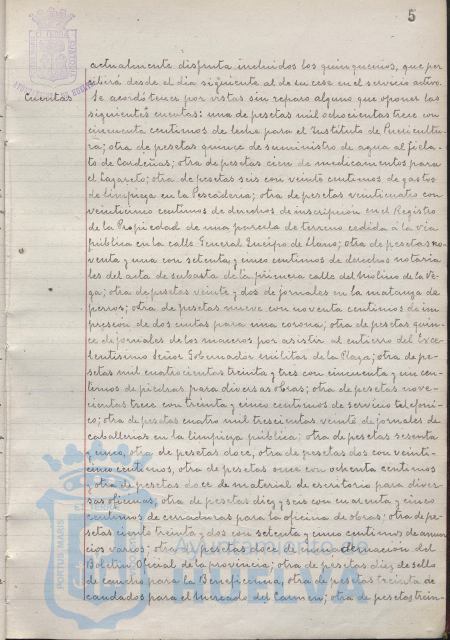 5
actualmente disfruta incluidos los quinquenios, que per
cibirá desde el dia siguiente al de su cese en el servicio activo.
Cuentas
Se acordó tener por vistas sin reparo alguno que oponer las
siguientes cuentas: una de pesetas mil ochocientas trece con
cincuenta centimos de leche para el Instituto de Puericultu-
ra; otra de pesetas quince de suministro de agua al fiela-
to de Cardeñas; otra de pesetas cien de medicamentos para
el Lazareto; otra de pesetas seis con veinte centimos de gastos
de limpieza en la Pescaderia; otra de pesetas veinticuatro con
veinticinco centimos de derechos de inscripción en el Registro
de la Propiedad de una parcela de terreno cedida á la via
pública en la calle General Queipo de Llano; otra de pesetas no-
venta y una con setenta y cinco centimos de derechos notaria-
les del acta de subasta de la primera calle del Molino de la Ve-
ga; otra de pesetas veinte y dos de jornales en la matanza de
perros; otra de pesetas nueve con noventa centimos de im-
presion de dos cintas para una corona; otra de pesetas quin-
ce de jornales de los maceros por asistir al entierro del Exce-
lentisimo Señor Gobernador militar de la Plaza; otra de pe-
setas mil cuatrocientas treinta y tres con cincuenta y un cen-
timos de piedras para diversas obras; otra de pesetas nove-
cientas trece con treinta y cinco centimos de servicio telefoni-
co; otra de pesetas cuatro mil trescientas veinte de jornales de
caballerias en la limpieza pública; otra de pesetas sesenta
y cinco, otra de pesetas doce, otra de pesetas dos con veinti-
cinco centimos, otra de pesetas once con ochenta centimos
y otra de pesetas doce de material de escritorio para diver-
sas oficinas, otra de pesetas diez y seis con cuarenta y cinco
centimos de cerraduras para la oficina de obras; otra de pe-
setas ciento treinta y dos con setenta y cinco centimos de anun-
cios varios; otra de pesetas doce de encuadernación del
Boletin Oficial de la provincia; otra de pesetas diez de sello
de caucho para la Beneficencia, otra de pesetas treinta de
candados para el Mercado del Carmen; otra de pesetas trein-
PORTUS MARIS
Ayuntamiento